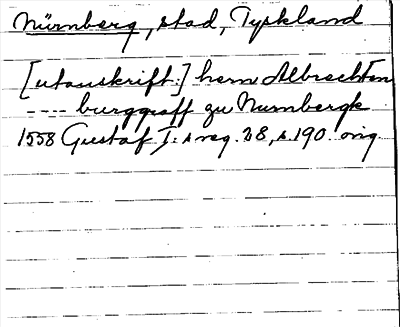 Nürnberg, stad, Tyskland
[utanskrift:] herrn Albrechten
---- burggraff zu Nurnbergk
1558 Gustaf I:s reg. 28, s. 190. orig.